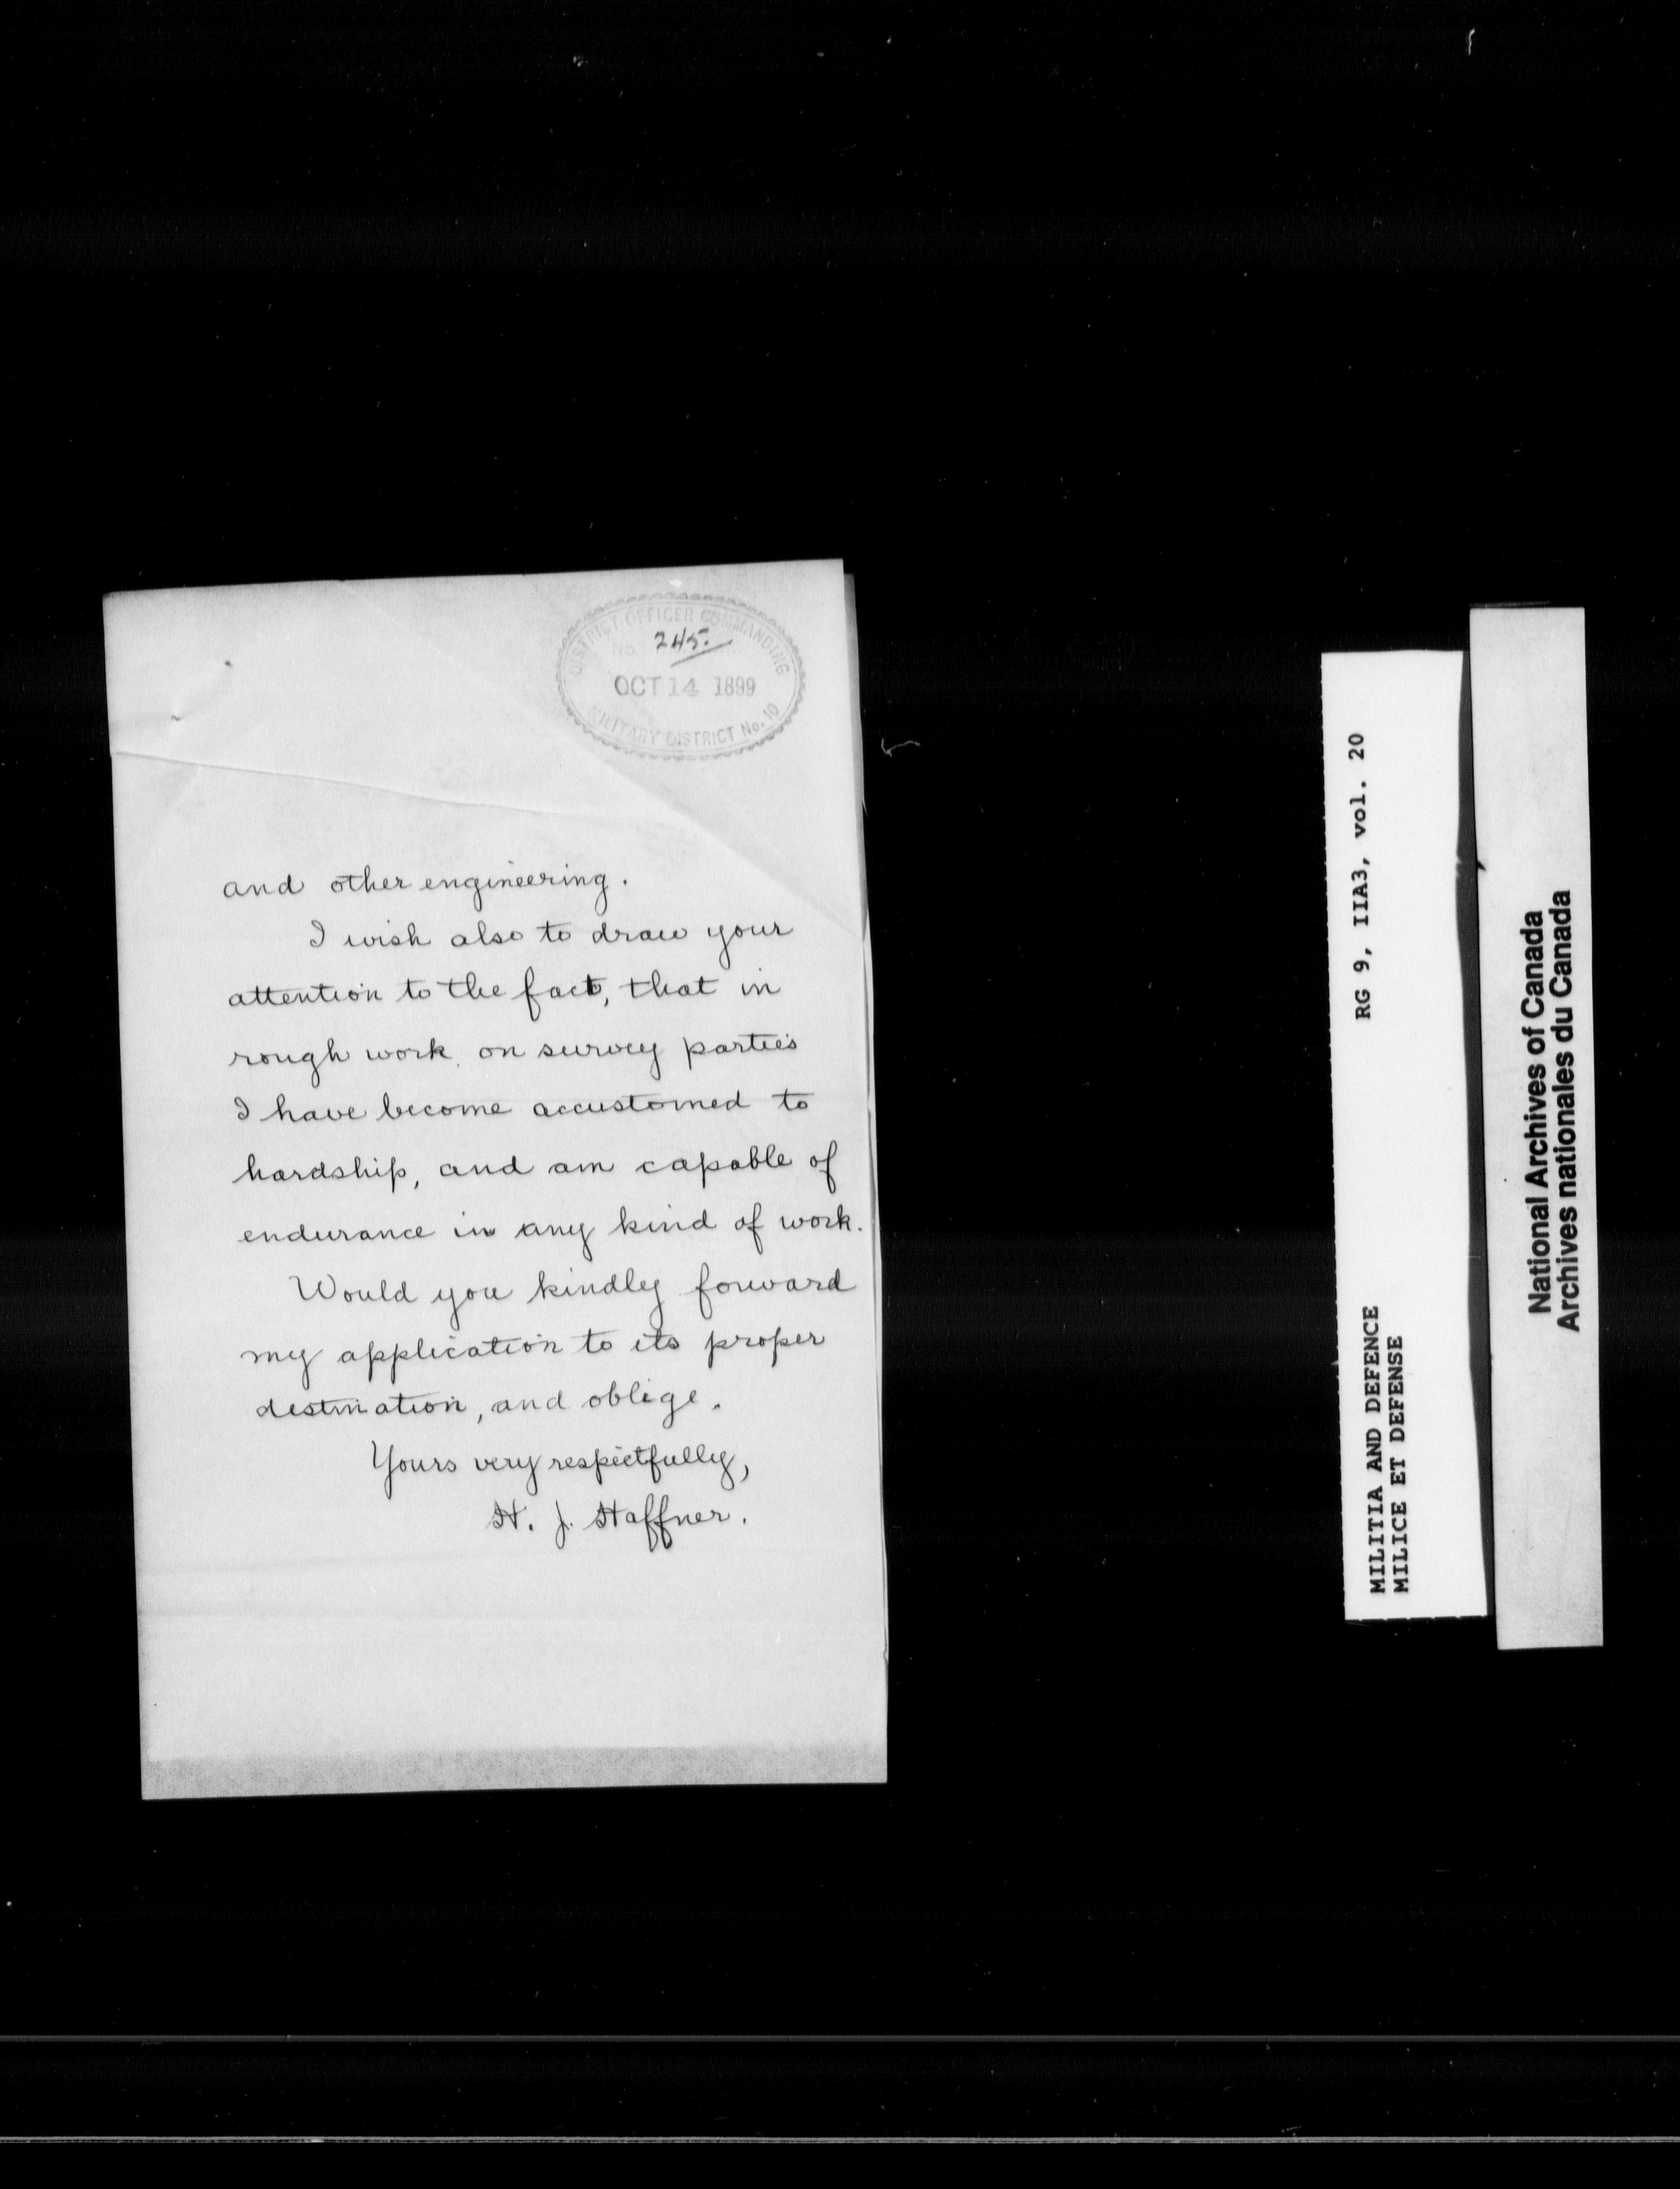 DISTRICT OFFICER COMMANDING
No. 245.
OCT 14 1899
MILITARY DISTRICT No. 10
and other engineering.
I wish also to draw your
attention to the fact, that in
rough work on survey parties
I have become accustomed to
hardship, and am capable of
endurance in any kind of work.
Would you kindly forward
my application to its proper
destination, and oblige.
Yours very respectfully,
H. J. Haffner.
MILITIA AND DEFENCE RG 9, IIA3, vol. 20
MILICE ET DEFENSE
National Archives of Canada
Archives nationales du Canada